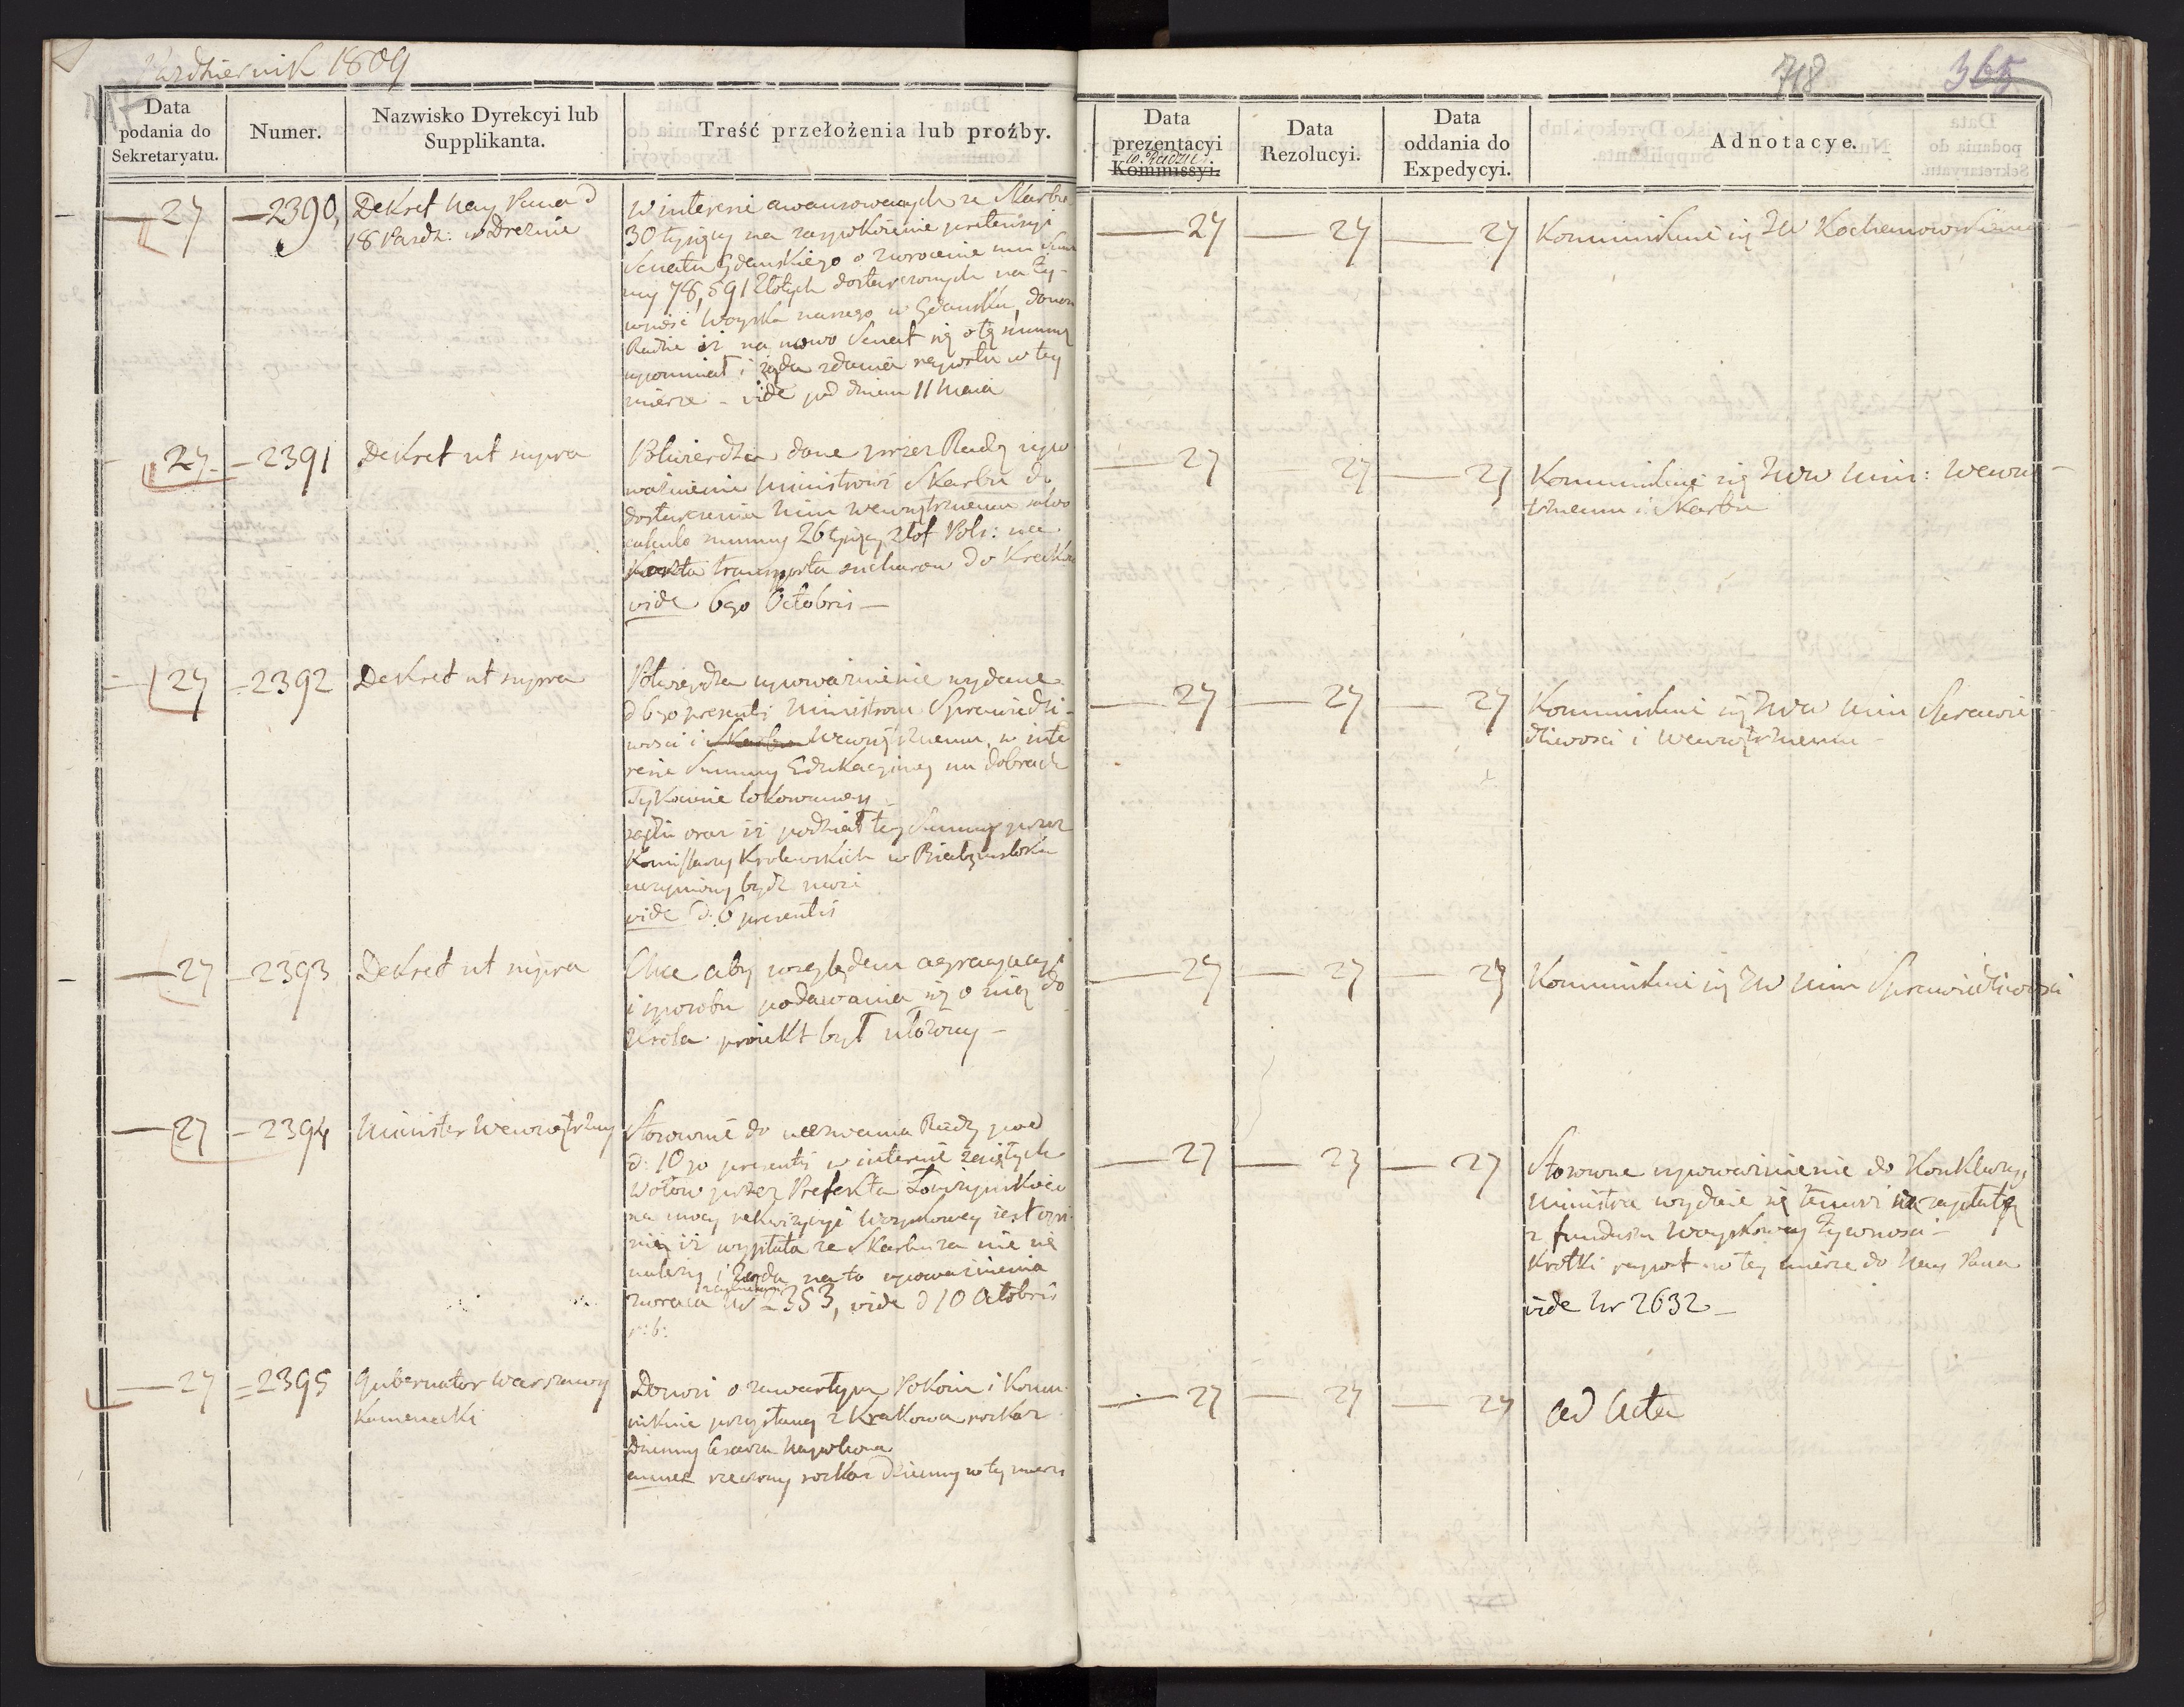 Październik 1809
718 365
Data podania do Sekretaryatu.
Numer.
Nazwisko Dyrekcyi lub Supplikanta.
Treść przełożenia lub proźby.
Data prezentacyi w Radzie Kommissyi.
Data Rezolucyi.
Data oddania do Expedycyi.
Adnotacye.
27 2390,
Dekret Nay Pana d
18 Pazdz: w Dreznie
W interesie awansowanych ze Skarbu
30 tysięcy na zaspokoienie pretensyi
Senatu Gdanskiego o zwrocenie mu Sum
my 78,591 Złotych dostarczonych na Ży-
wność Woyska naszego w Gdansku, donosi
Radzie iż na nowo Senat się o tę summę
upomniał i żąda zdania raportu w tey
mierze - vide pod dniem 11 Maia
27 27 27
Kommunikuie się JW Kochanowskiemu
27 2391
Dekret ut supra
Potwierdza dane przez Radę upo
ważnienie Ministrowi Skarbu do
dostarczenia Min Wewnętrznemu salvo
calculo summy 26 tysięcy złot Pols: na
koszta transportu sucharow do Krakowa
vide 6go Octobris —
27 27 27
Kommunikuie się JWW Min: Wewnę
trznemu i Skarbu
27 2392
Dekret ut supra
Potwierdza upoważnienie wydane
d 6go presentis Ministrom Sprawiedli-
wosci i Skarbu Wewnętrznemu, w inte
resie Summy Edukacyiney na dobrach
Tykocinie lokowaney
oraz iż podział tey Summy przez
Komissarzy Krolewskich w Białymstoku
uczyniony bydź może
vide d: 6 presentis
27 27 27
Kommunikuie się JWW Min Sprawie
dliwosci i Wewnętrznemu
27 2393
Dekret ut supra
Chce aby względem agracyacyi
i sposobu podawania się o nią do
Krola proiekt był ułożony —
27 27 27
Kommunikuie się JW Min Sprawiedliwosci
27 2394
Minister Wewnętrzny
Stosownie do wezwania Rady pod
d: 10go presentis w interesie zaiętych
Wołow przez Prefekta Łomżynskiego
na mocy rekwizycyi Woyskowey iest opi
nii iż wypłata ze Skarbu za nie się
należy i żąda na to upoważnienia
zwraca Nr 2353, vide d 10 Octobris
r: b:
27 27 27
Stosowne upoważnienie do Konkluzyi
Ministra wydaie się temuż na zapłatę
z funduszu Woyskowey Żywnosci —
krotki raport w tey mierze do Nay Pana
vide Nr 2632 —
27 2395
Gubernator Warszawy
Kamenecki
Donosi o zawartym Pokoiu i Komu
nikuie przysłany z Krakowa rozkaz
Dzienny Cesarza Napoleona
annex rzeczony rozkaz dzienny w tey mierze
27 27 27
ad Acta